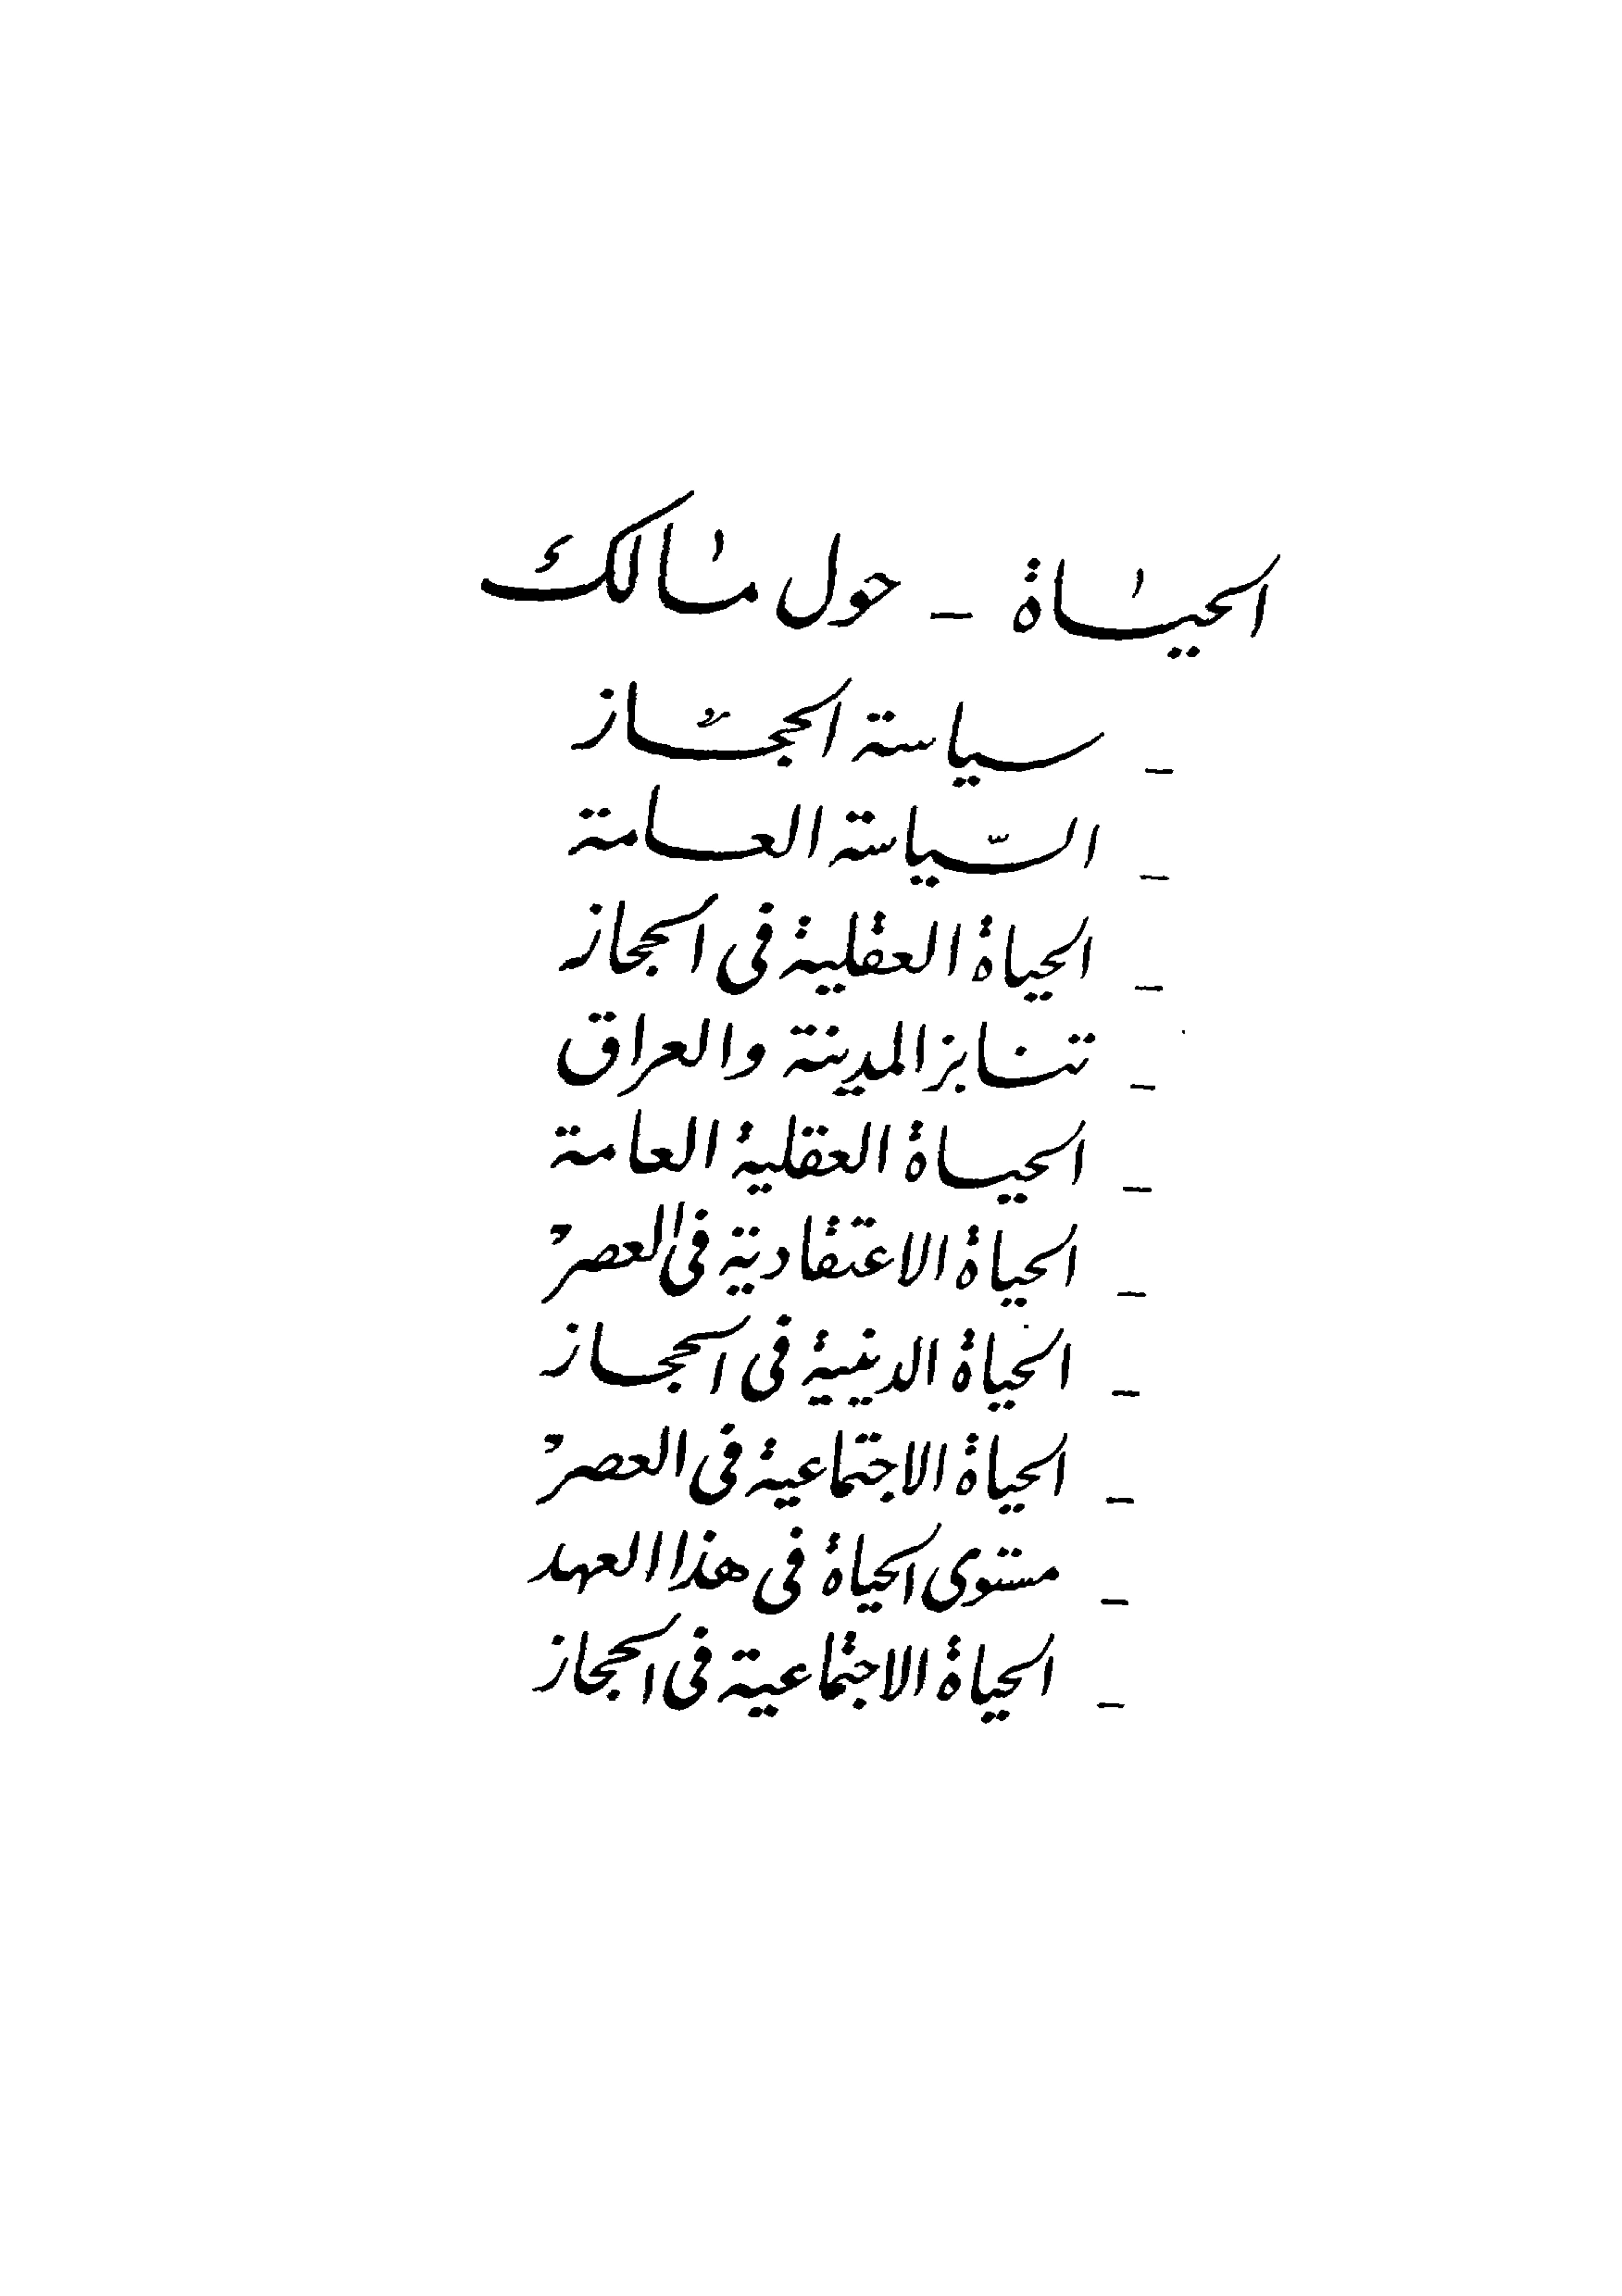 الحياة - حول مالك
- سياسة الحجاز
- السّياسة العامة
- الحياة العقلية فى الحجاز
- تنابز المدينة والعراق
- الحياة العقلية العامة
- الحياة الاعتقادية فى العصر
- الحياة الدينية فى الحجاز
- الحياة الاجتماعية فى العصر
- مستوى الحياة فى هذا العهد
- الحياة الاجتماعية فى الحجاز